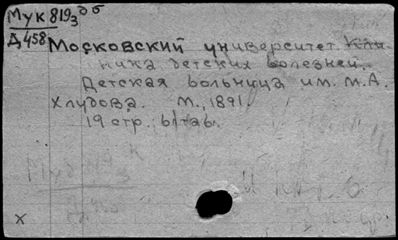 Мук 819з об
Д458
Московский университет. Кли
ника детских болезней.
Детская больница им. М.А.
Хлудова. М., 1891.
19 стр., 6 таб.
x